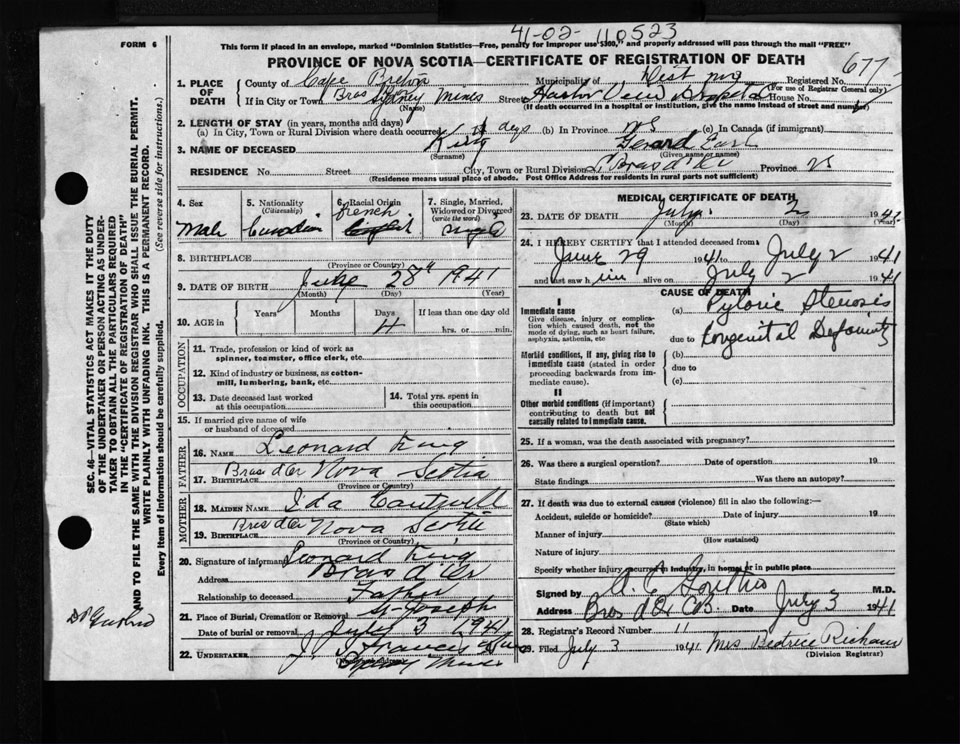 41-02-110523
FORM 6
This form if placed in an envelope, marked "Dominion Statistics—Free, penalty for improper use $300," and properly addressed will pass through the mail "FREE"
PROVINCE OF NOVA SCOTIA—CERTIFICATE OF REGISTRATION OF DEATH
677
1. PLACE OF DEATH County of Cape Breton Municipality of Registered No. (For use of Registrar General only)
If in City or Town Sydney Mines (Name) Street Harbor View Hospital House No.
(If death occurred in a hospital or institution, give the name instead of street and number)
2. LENGTH OF STAY (in years, months and days)
(a) In City, Town or Rural Division where death occurred days (b) In Province NS (c) In Canada (if immigrant)
3. NAME OF DECEASED King (Surname) Gerard Earl (Given name or names)
RESIDENCE No. Street City, Town or Rural Division Province NS
(Residence means usual place of abode. Post Office Address for residents in rural parts not sufficient)
4. Sex Male
5. Nationality (Citizenship) Canadian
6. Racial Origin French English
7. Single, Married, Widowed or Divorced (write the word) Single
8. BIRTHPLACE (Province or Country)
9. DATE OF BIRTH June 28th 1941
(Month) (Day) (Year)
10. AGE in Years Months Days 4 If less than one day old hrs. or min.
OCCUPATION
11. Trade, profession or kind of work as spinner, teamster, office clerk, etc.
12. Kind of industry or business, as cotton-mill, lumbering, bank, etc.
13. Date deceased last worked at this occupation
14. Total yrs. spent in this occupation
15. If married give name of wife or husband of deceased
FATHER
16. NAME Leonard King
17. BIRTHPLACE Bras d'Or Nova Scotia (Province or Country)
MOTHER
18. MAIDEN NAME Ida Cantwell
19. BIRTHPLACE Bras d'Or Nova Scotia (Province or Country)
20. Signature of informant Leonard King
Address Bras d'Or
Relationship to deceased Father
21. Place of Burial, Cremation or Removal St. Joseph
Date of burial or removal July 3 1941
22. UNDERTAKER J. Francis
Sydney Mines
MEDICAL CERTIFICATE OF DEATH
23. DATE OF DEATH July 2 1941
(Month) (Day) (Year)
24. I HEREBY CERTIFY that I attended deceased from
June 29 1941 to July 2 1941
and last saw him alive on July 2 1941
CAUSE OF DEATH
I
Immediate cause
Give disease, injury or complication which caused death, not the mode of dying, such as heart failure, asphyxia, asthenia, etc
(a) Pyloric Stenosis
due to Congenital Deformity
Morbid conditions, if any, giving rise to immediate cause (stated in order proceeding backwards from immediate cause).
(b)
due to
(c)
II
Other morbid conditions (if important) contributing to death but not causally related to immediate cause.
25. If a woman, was the death associated with pregnancy?
26. Was there a surgical operation? Date of operation 19
State findings Was there an autopsy?
27. If death was due to external causes (violence) fill in also the following:—
Accident, suicide or homicide? Date of injury 19
(State which)
Manner of injury
(How sustained)
Nature of injury
Specify whether injury occurred in industry, in home, or in public place
Signed by M.D.
Address Bras d'Or C.B. Date July 3 1941
28. Registrar's Record Number 11
29. Filed July 3 1941 Mrs Beatrice
(Division Registrar)
SEC. 46—VITAL STATISTICS ACT MAKES IT THE DUTY
OF THE UNDERTAKER OR PERSON ACTING AS UNDER-
TAKER TO OBTAIN ALL THE PARTICULARS REQUIRED
IN THE "CERTIFICATE OF REGISTRATION OF DEATH"
AND TO FILE THE SAME WITH THE DIVISION REGISTRAR WHO SHALL ISSUE THE BURIAL PERMIT.
WRITE PLAINLY WITH UNFADING INK. THIS IS A PERMANENT RECORD.
Every item of information should be carefully supplied. (See reverse side for instructions.)